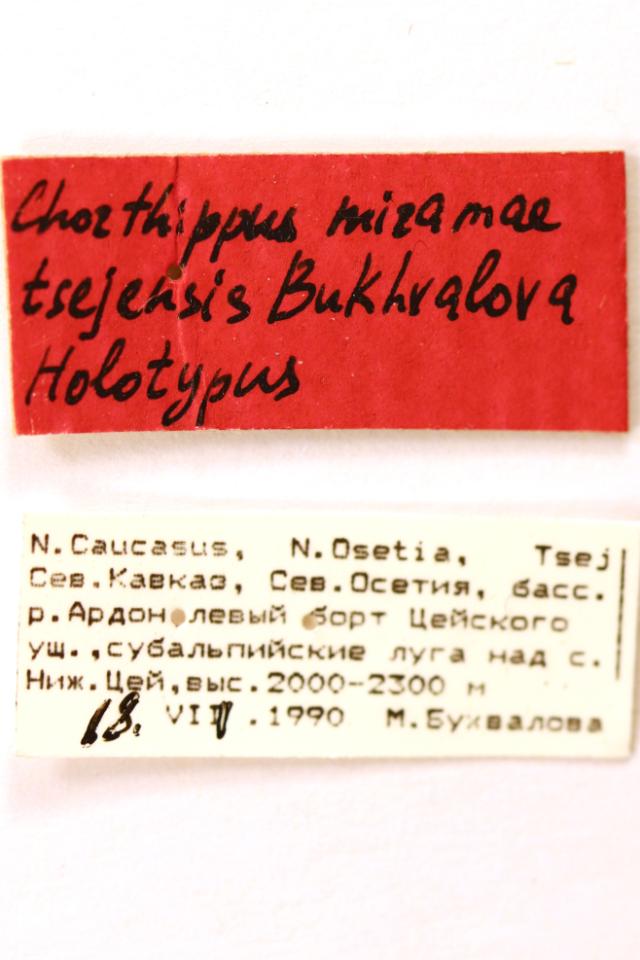 Chorthippus miramae
tsejensis Bukhvalova
Holotypus
N.Caucasus, N.Osetia, Tsej
Сев.Кавказ, Сев.Осетия, басс.
р.Ардон левый борт Цейского
ущ.,субальпийские луга над с.
Ниж.Цей,выс.2000-2300 м
.1990 М.Бухвалова